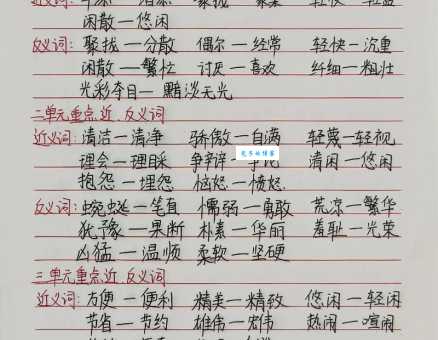 闲散—悠闲
反义词: 聚拢—分散 偶尔—经常 轻快—沉重
闲散—繁忙 讨厌—喜欢 纤细—粗壮
光彩夺目—黯淡无光
二单元重点近、反义词
近义词: 清洁—清净 骄傲—自满 轻蔑—轻视
理会—理睬 争辩—争论 清闲—悠闲
抱怨—埋怨 恼怒—愤怒.
反义词: 蜿蜒—笔直 懦弱—勇敢 荒凉—繁华
犹豫—果断 朴素—华丽 羞耻—光荣
凶猛—温顺 柔软—坚硬
三单元重点近、反义词
近义词: 方便—便利 精美—精致 悠闲—轻闲
节省—节约 雄伟—宏伟 热闹—喧闹